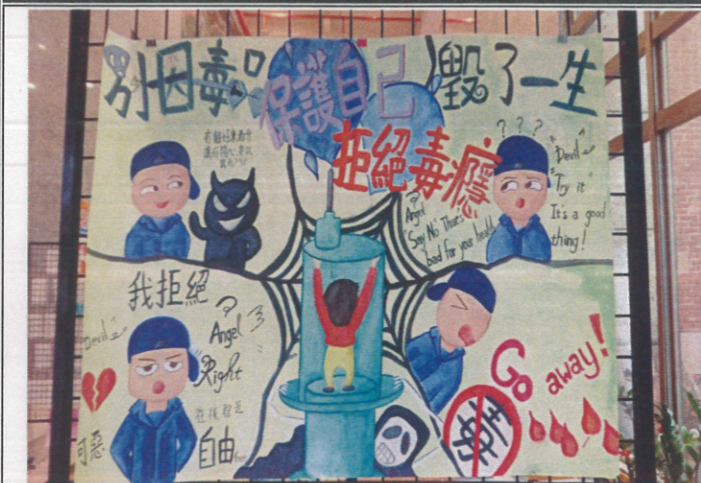 別因毒品
保護自己
毀了一生
拒絕毒癮
有個好東西
讓你開心
? ? ?
"Devil"
"Try it"
It's a good
thing!
Angel
"Say No" That's
bad for your health
我拒絕
Devil
Angel
"Right
自由
可惡
Go away!
毒